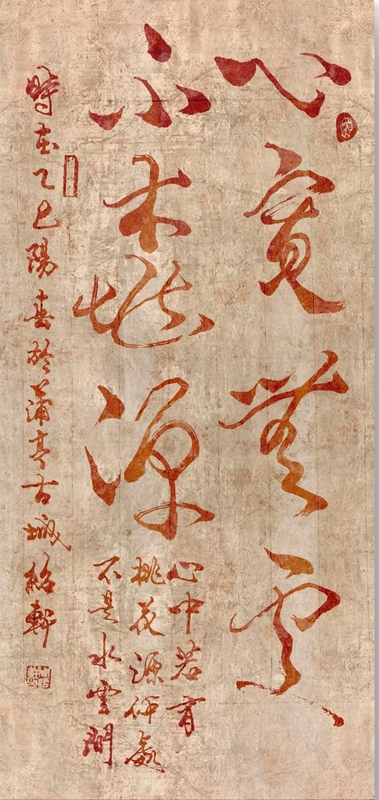 心寬無處
不桃源
心中若有
桃花源何處
不是水雲間
時在乙巳陽春於蒲亭古城紹軒